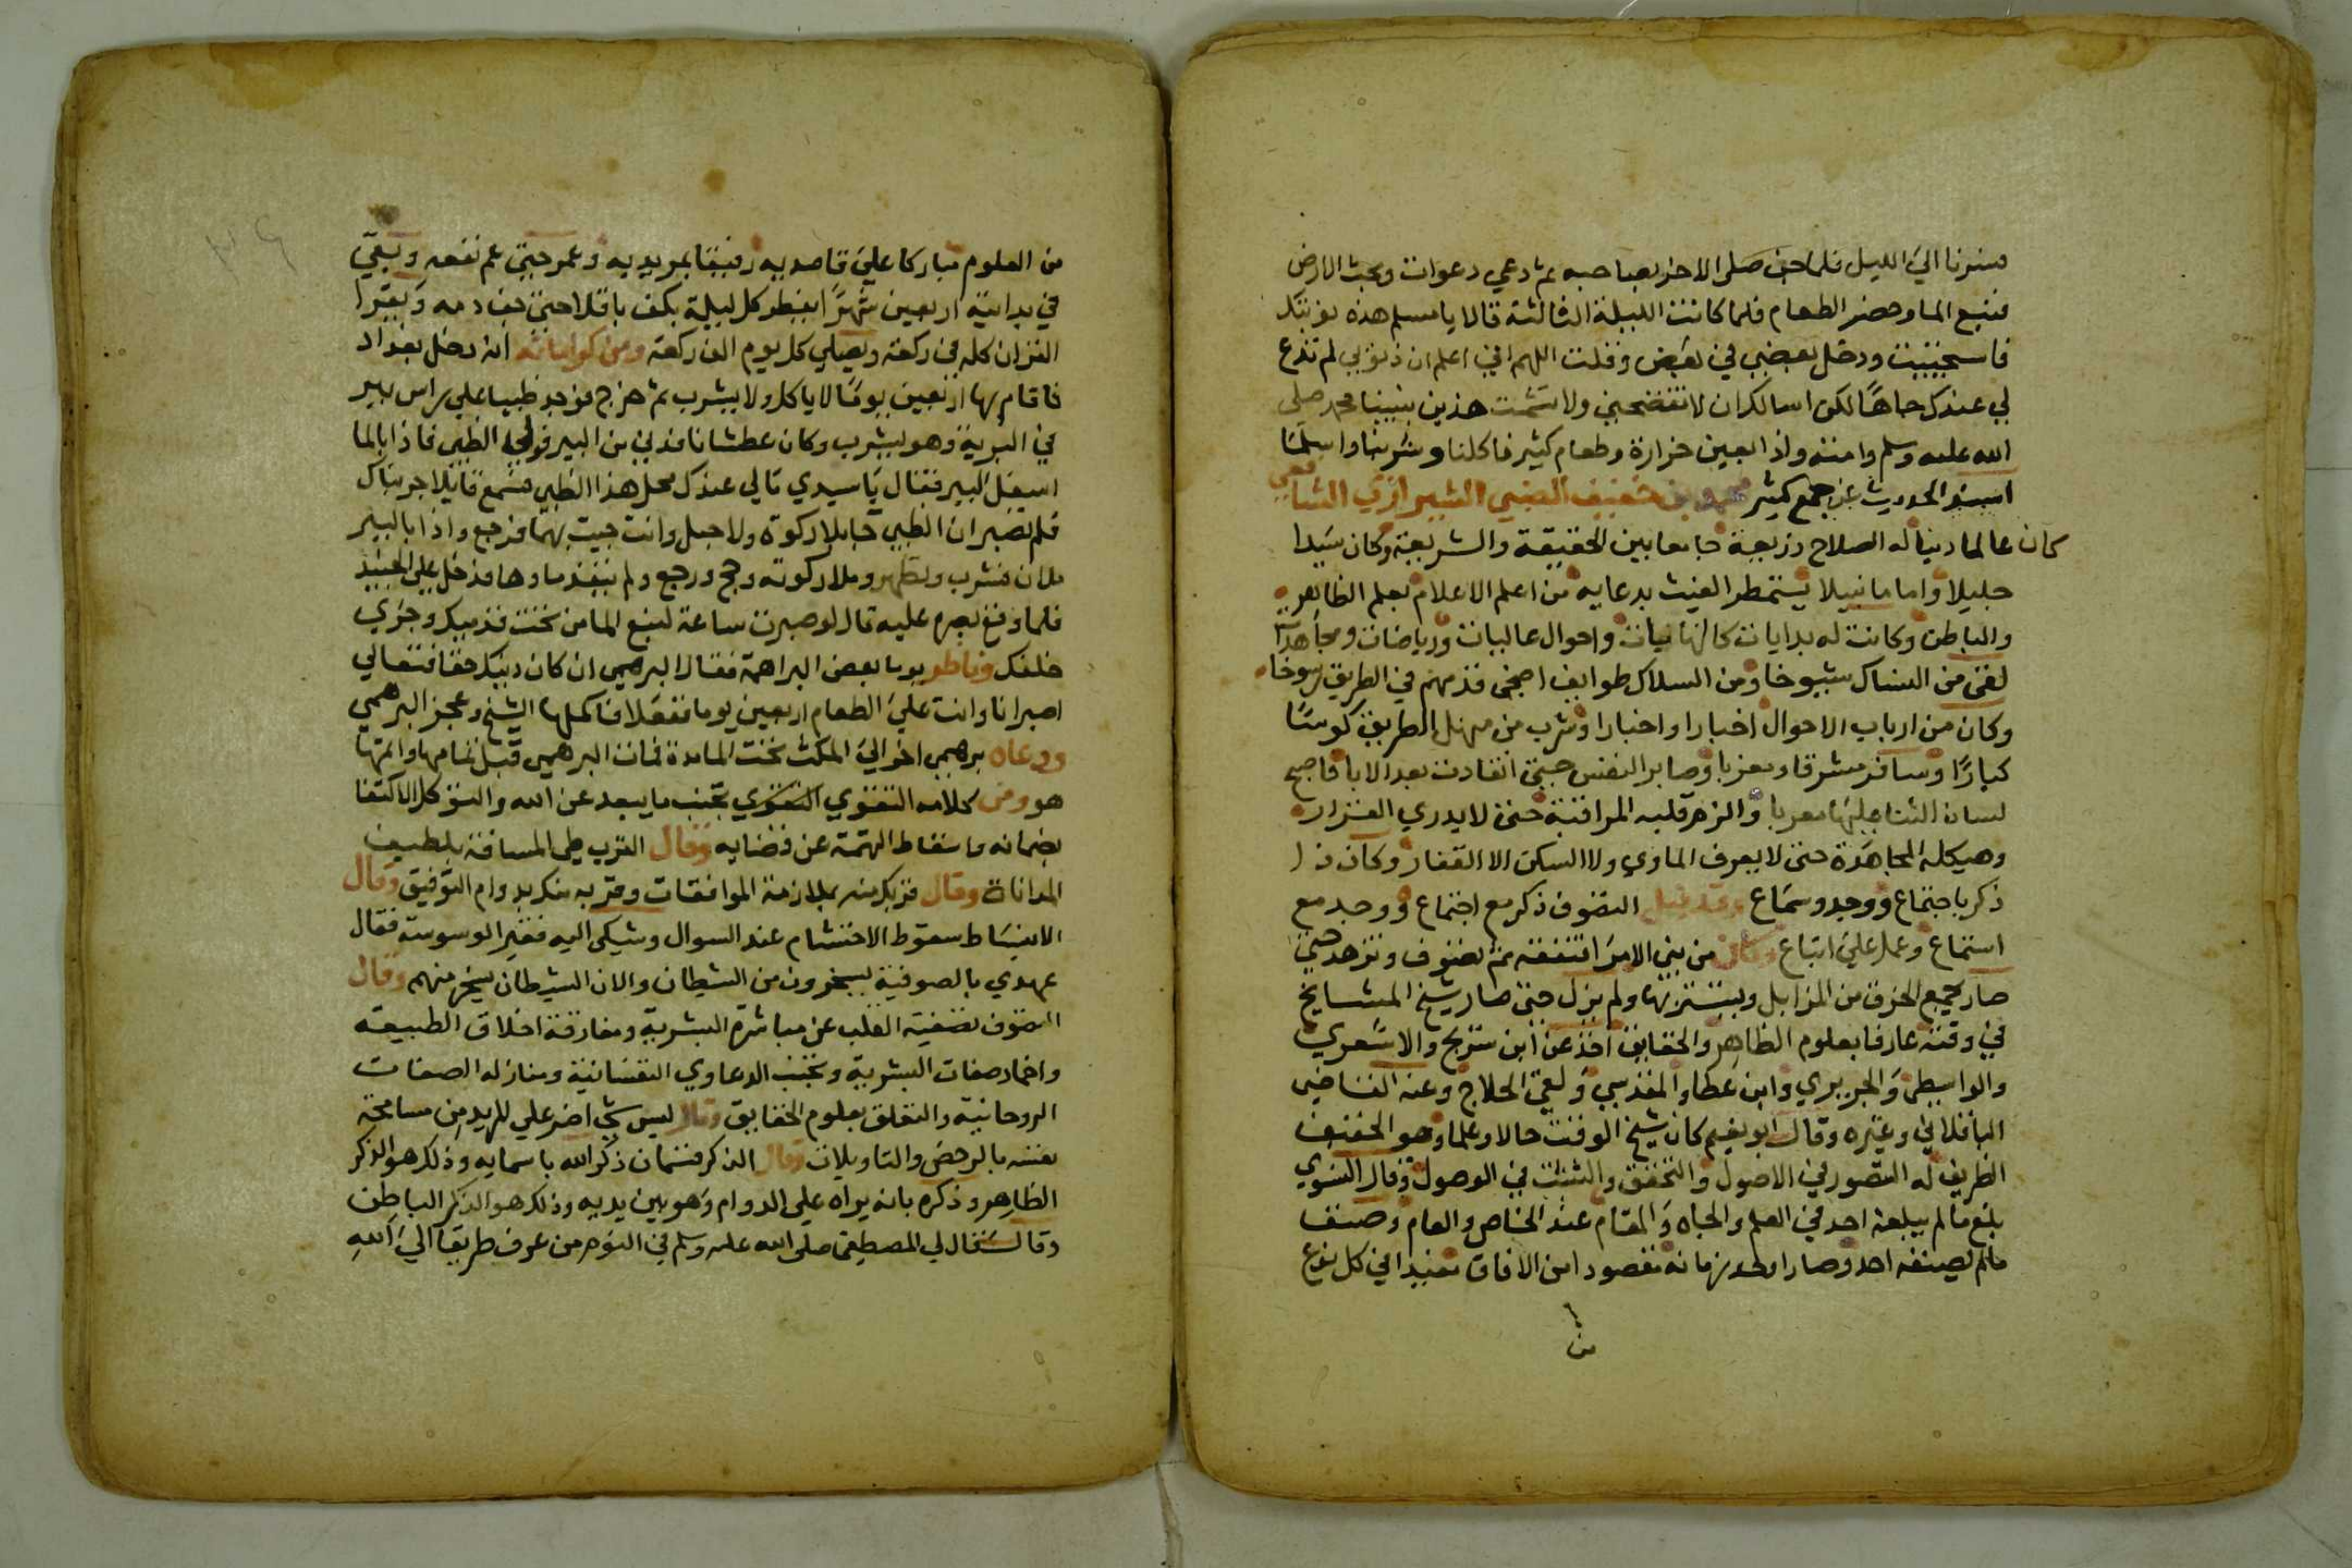 فسرنا الي الليل فلما جن صلي الاخر بصاحبه ثم دعي دعوات وبحث الارض
فنبع الما وحضر الطعام فلما كانت الليلة الثالثة قالا يا مسلم هذه نوبتك
فاستحييت ودخل بعضي في بعض وقلت اللهم اني اعلم ان ذنوبي لم تدع
لي عندك جاها لكن اسالك ان لا تفضحني ولا تشمت هذين بنبينا محمد صلي
الله عليه وسلم وامته واذا بعين خرارة وطعام كثير فاكلنا وشربنا واسلما
اسند الحديث عن جمع كثير محمد بن خفيف الضبي الشيرازي الشافعي
كان عالما دينا له الصلاح ذريعة جامعا بين الحقيقة والشريعة وكان سيدا
جليلا واماما نبيلا يستمطر الغيث بدعايه من اعلم الاعلام بعلم الظاهر
والباطن وكانت له بدايات كالنهايات واحوال عاليات ورياضات ومجاهدات
لقي من النساك شيوخا ومن السلاك طوايف اضحي قدمهم في الطريق رسوخا
وكان من ارباب الاحوال اخبارا واخيارا وشرب من منهل الطريق كوسا
كبارا وسافر مشرقا ومغربا وصابر النفس حتي انقادت بعد الابا فاصبح
لسان الثنا عليها معربا والزم قلبه المراقبة حتي لا يدري القرار
وهيكله المجاهدة حتي لا يعرف الماوي ولا السكن الا القفار وكان ذا
ذكر باجتماع ووجد وسماع وقد قيل التصوف ذكر مع اجتماع ووجد مع
استماع وعمل علي اتباع وكان من بني الامرا فتفقه ثم تصوف وتزهد حتي
صار يجمع الخرق من المزابل ويستتر بها ولم يزل حتي صار شيخ المشايخ
في وقته عارفا بعلوم الظاهر والحقايق اخذ عن ابن سريج والاشعري
والواسطي والجريري وابن عطا والمقدسي ولقي الحلاج وعنه القاضي
الباقلاني وغيره وقال ابو نعيم كان شيخ الوقت حالا وعلما وهو الخفيف
الظريف له التصور في الاصول والتحقق والتثبت في الوصول وقال النسوي
بلغ ما لم يبلغه احد في العلم والجاه والمقام عند الخاص والعام وصنف
مالم يصنفه احد وصار اوحد زمانه مقصودا من الافاق مفيدا في كل نوع
من
من العلوم مباركا علي قاصديه رفيقا بمريديه وعمر حتي عم نفعه وبقي
في بدايته اربعين شهرا يفطر كل ليلة بكف باقلا حتي جف دمه ويقرا
القران كله في ركعة ويصلي كل يوم الف ركعة ومن كراماته انه دخل بغداد
فاقام بها اربعين يوما لا ياكل ولا يشرب ثم خرج فوجد ظبيا علي راس بير
في البرية وهو يشرب وكان عطشانا فدني من البير فولي الظبي فاذا بالما
اسفل البير فقال يا سيدي مالي عندك محل هذا الظبي فسمع قايلا جربناك
فلم تصبر ان الظبي جا بلا ركوة ولا حبل وانت جيت بهما فرجع واذا بالبير
ملان فشرب وتطهر وملا ركوته وحج ورجع ولم ينفذ ماوها فدخل علي الجنيد
فلما وقع بصره عليه قال لو صبرت ساعة لنبع الما من تحت قدميك وجري
خلفك وناظر يوما بعض البراهمة فقال البرهمي ان كان دينك حقا فتعالي
اصبر انا وانت علي الطعام اربعين يوما ففعلا فاكملها الشيخ وعجز البرهمي
ودعاه برهمي اخر الي المكث تحت الما مدة فمات البرهمي قبل تمامها واتمها
هو ومن كلامه التقوي التقوي تجنب ما يبعد عن الله والتوكل الاكتفا
بضمانه واسقاط التهمة عن قضايه وقال القرب طي المسافة بلطيف
المداناة وقال قربك منه بملازمة الموافقات وقربه منك بدوام التوفيق وقال
الانبساط سقوط الاحتشام عند السوال وشكي اليه فقير الوسوسة فقال
عهدي بالصوفية يسخرون من الشيطان والان الشيطان يسخر منهم وقال
التصوف تصفية القلب عن مباشرة البشرية ومفارقة اخلاق الطبيعة
واخماد صفات البشرية وتجنب الدعاوي النفسانية ومنازله الصفات
الروحانية والتعلق بعلوم الحقايق وقال ليس شي اضر علي المريد من مسامحة
نفسه بالرخص والتاويلات وقال الذكر قسمان ذكر الله باسمايه وذلك هو الذكر
الظاهر وذكره بانه يراه علي الدوام وهو بين يديه وذلك هو الذكر الباطن
وقال قال لي المصطفي صلي الله عليه وسلم في النوم من عرف طريقا الي الله